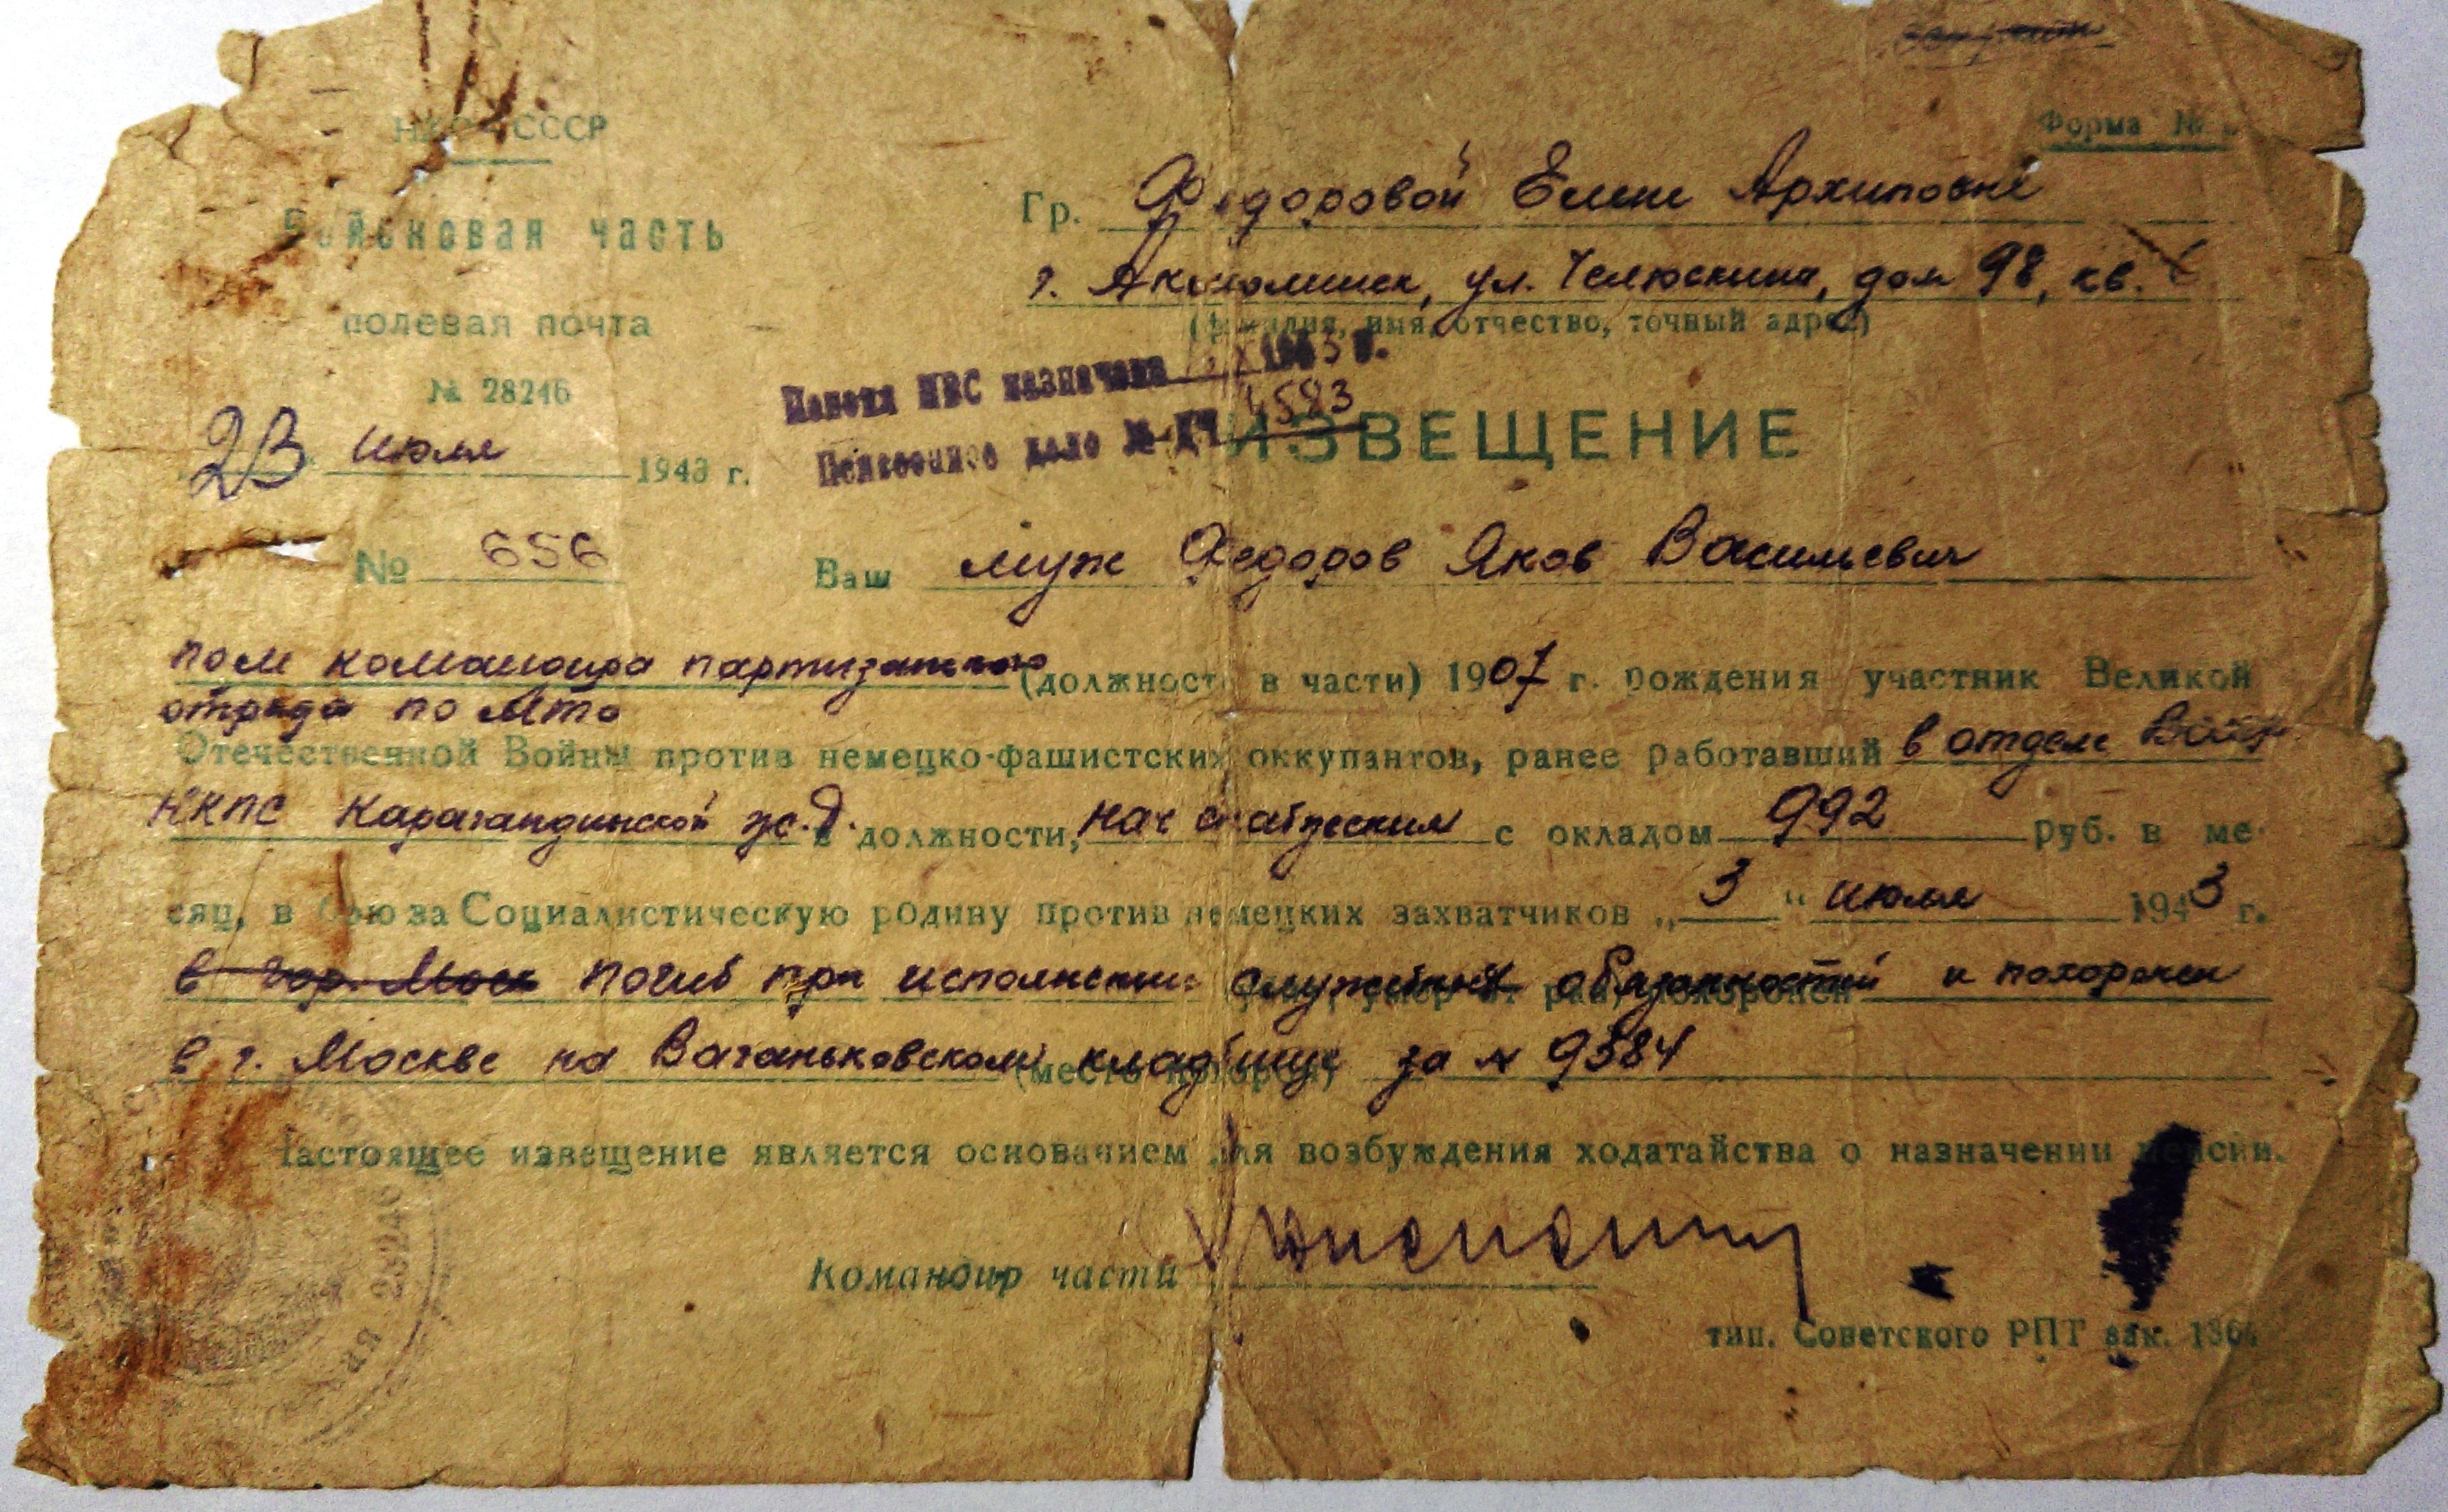 СССР
Форма №
Войсковая часть
Гр. Федоровой Елене Архиповне
г. Акмолинск, ул. Челюскина, дом 98, кв.
полевая почта
(фамилия, имя, отчество, точный адрес)
№ 28246
назначена
Пенсионное дело № 4583
ИЗВЕЩЕНИЕ
23 июля 1943 г.
№ 656
Ваш муж Федоров Яков Васильевич
пом командира партизанского (должность в части) 1907 г. рождения участник Великой
отряда по МТО
Отечественной Войны против немецко-фашистских оккупантов, ранее работавший в отделе
НКПС Карагандинской ж.д. в должности, нач с окладом 992 руб. в ме-
сяц, в бою за Социалистическую родину против немецких захватчиков „3" июля 1943 г.
в гор. Моск погиб при исполнении служебных обязанностей и похоронен
в г. Москве на Ваганьковском кладбище за № 9384
Настоящее извещение является основанием для возбуждения ходатайства о назначении пенсии.
Командир части
28246
тип. Советского РПТ зак.